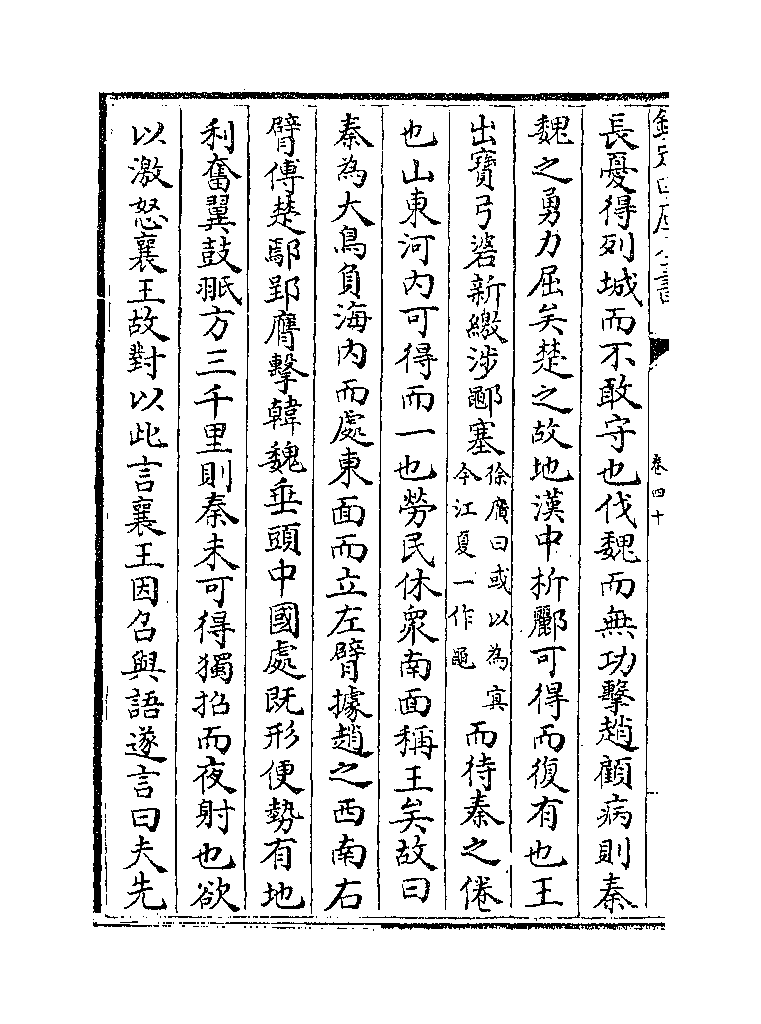 欽定四庫全書
卷四十
長憂得列城而不敢守也伐魏而無功擊趙顧病則秦
魏之勇力屈矣楚之故地漢中析酈可得而復有也王
出寶弓碆新繳涉鄳塞徐廣曰或以為寘今江夏一作黽而待秦之倦
也山東河內可得而一也勞民休衆南面稱王矣故曰
秦為大鳥負海內而處東面而立左臂據趙之西南右
臂傅楚鄢郢膺擊韓魏垂頭中國處既形便勢有地
利奮翼鼓翄方三千里則秦未可得獨招而夜射也欲
以激怒襄王故對以此言襄王因召與語遂言曰夫先